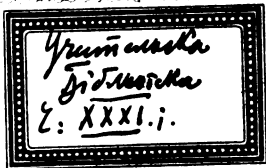 Учительска
Бібліотека
Ч: XXXI.i.